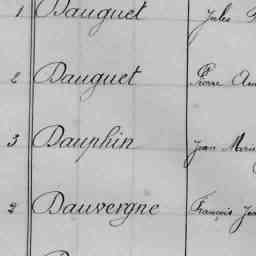 1 Dauguet Jules
2 Dauguet Pierre
3 Dauphin Jean Marie
2 Dauvergne François